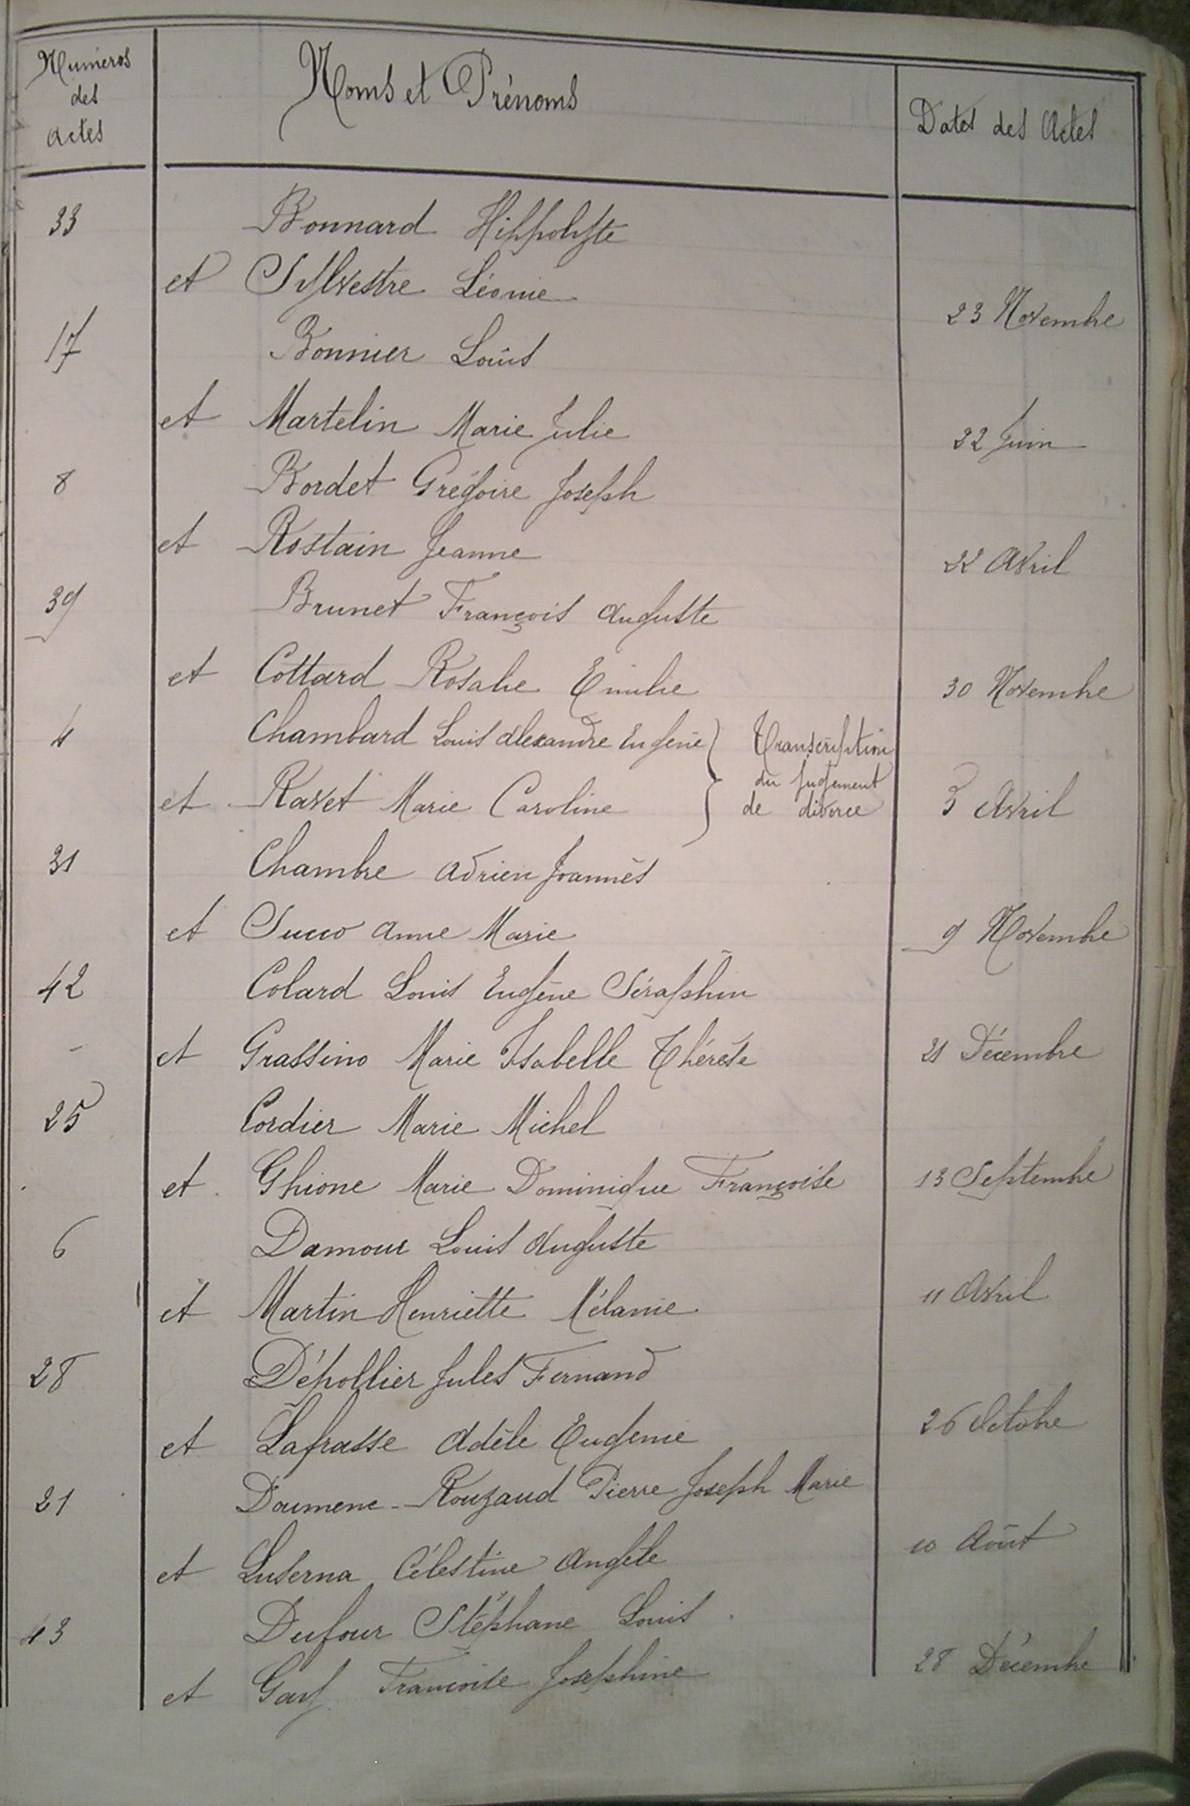 Numéros des actes Noms et Prénoms Dates des Actes
33 Bonnard Hippolyte
et Sylvestre Léonie 23 Novembre
17 Bonnier Louis
et Martelin Marie Julie 22 Juin
8 Bordet Grégoire Joseph
et Rostain Jeanne 22 Avril
39 Brunet François Auguste
et Cottard Rosalie Emilie 30 Novembre
4 Chambard Louis Alexandre Eugène } Transcription
du jugement
et Ravet Marie Caroline } de divorce 3 Avril
31 Chambre Adrien Joannès
et Succo Anne Marie 9 Novembre
42 Colard Louis Eugène Séraphin
et Grassino Marie Isabelle Thérèse 21 Décembre
25 Cordier Marie Michel
et Ghione Marie Dominique Françoise 13 Septembre
6 Damour Louis Auguste
et Martin Henriette Mélanie 11 Avril
28 Dépollier Jules Fernand
et Lafrasse Adèle Eugenie 26 Octobre
21 Doumenc-Rouzaud Pierre Joseph Marie
et Luserna Célestine Angèle 10 Août
43 Dufour Stéphane Louis
et Françoise Josephine 28 Décembre